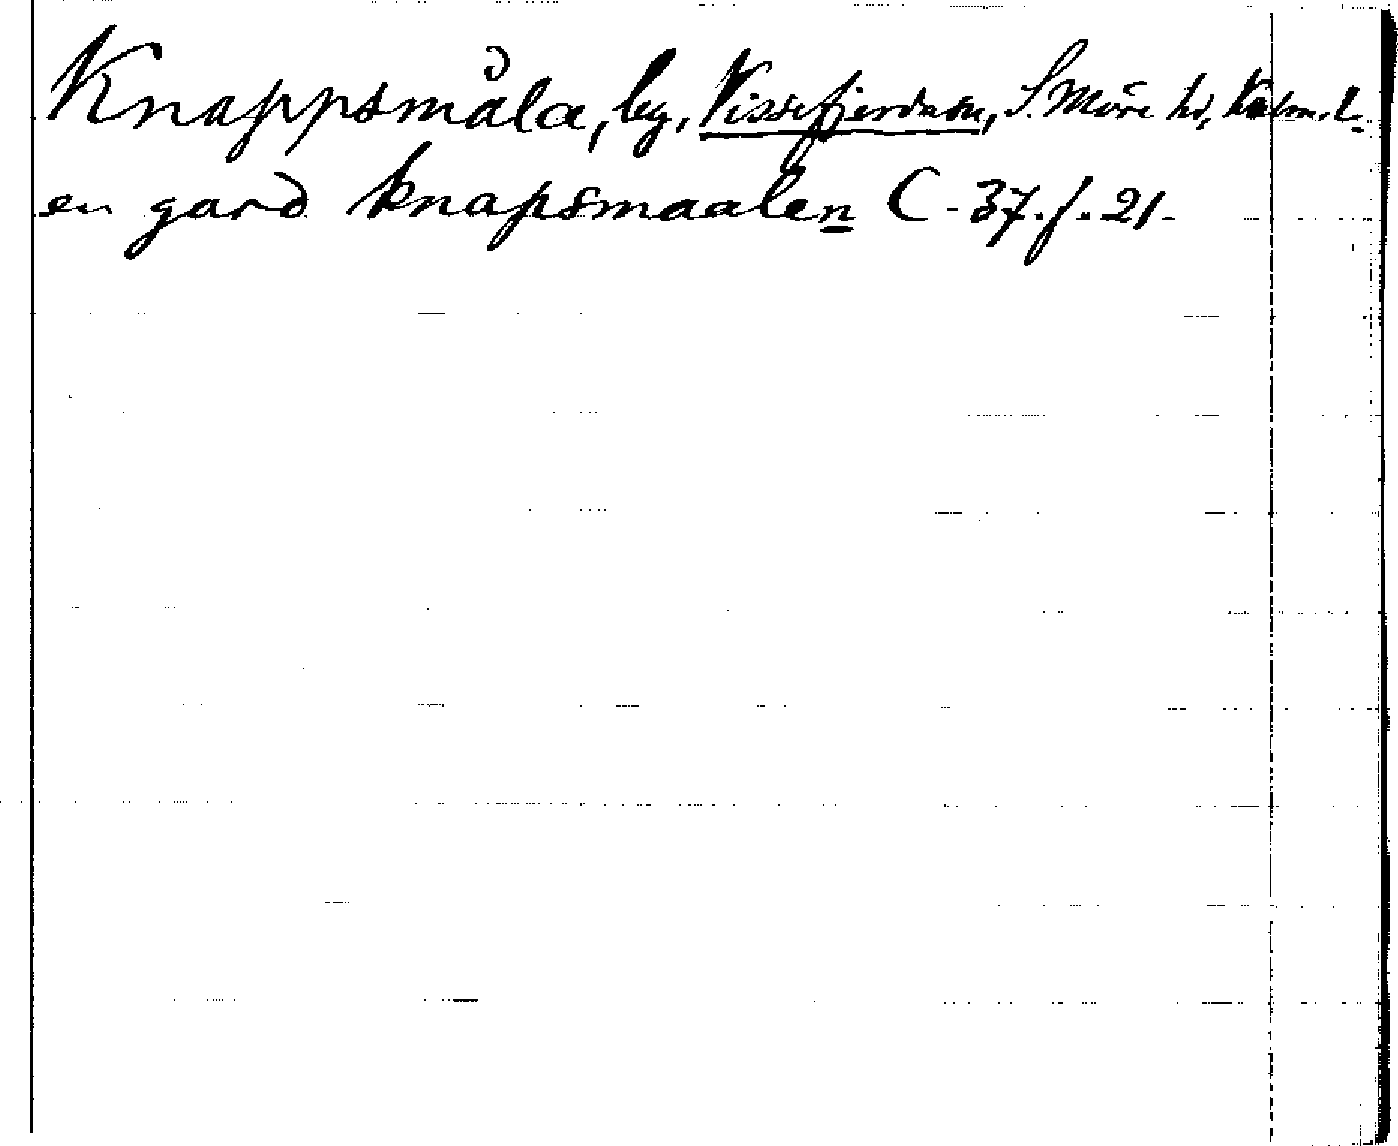 Knappsmåla, by, Vissefjerda sn, S. Möre hd, Kalm. l.
en gard knapsmaalen C-37. f. 21.